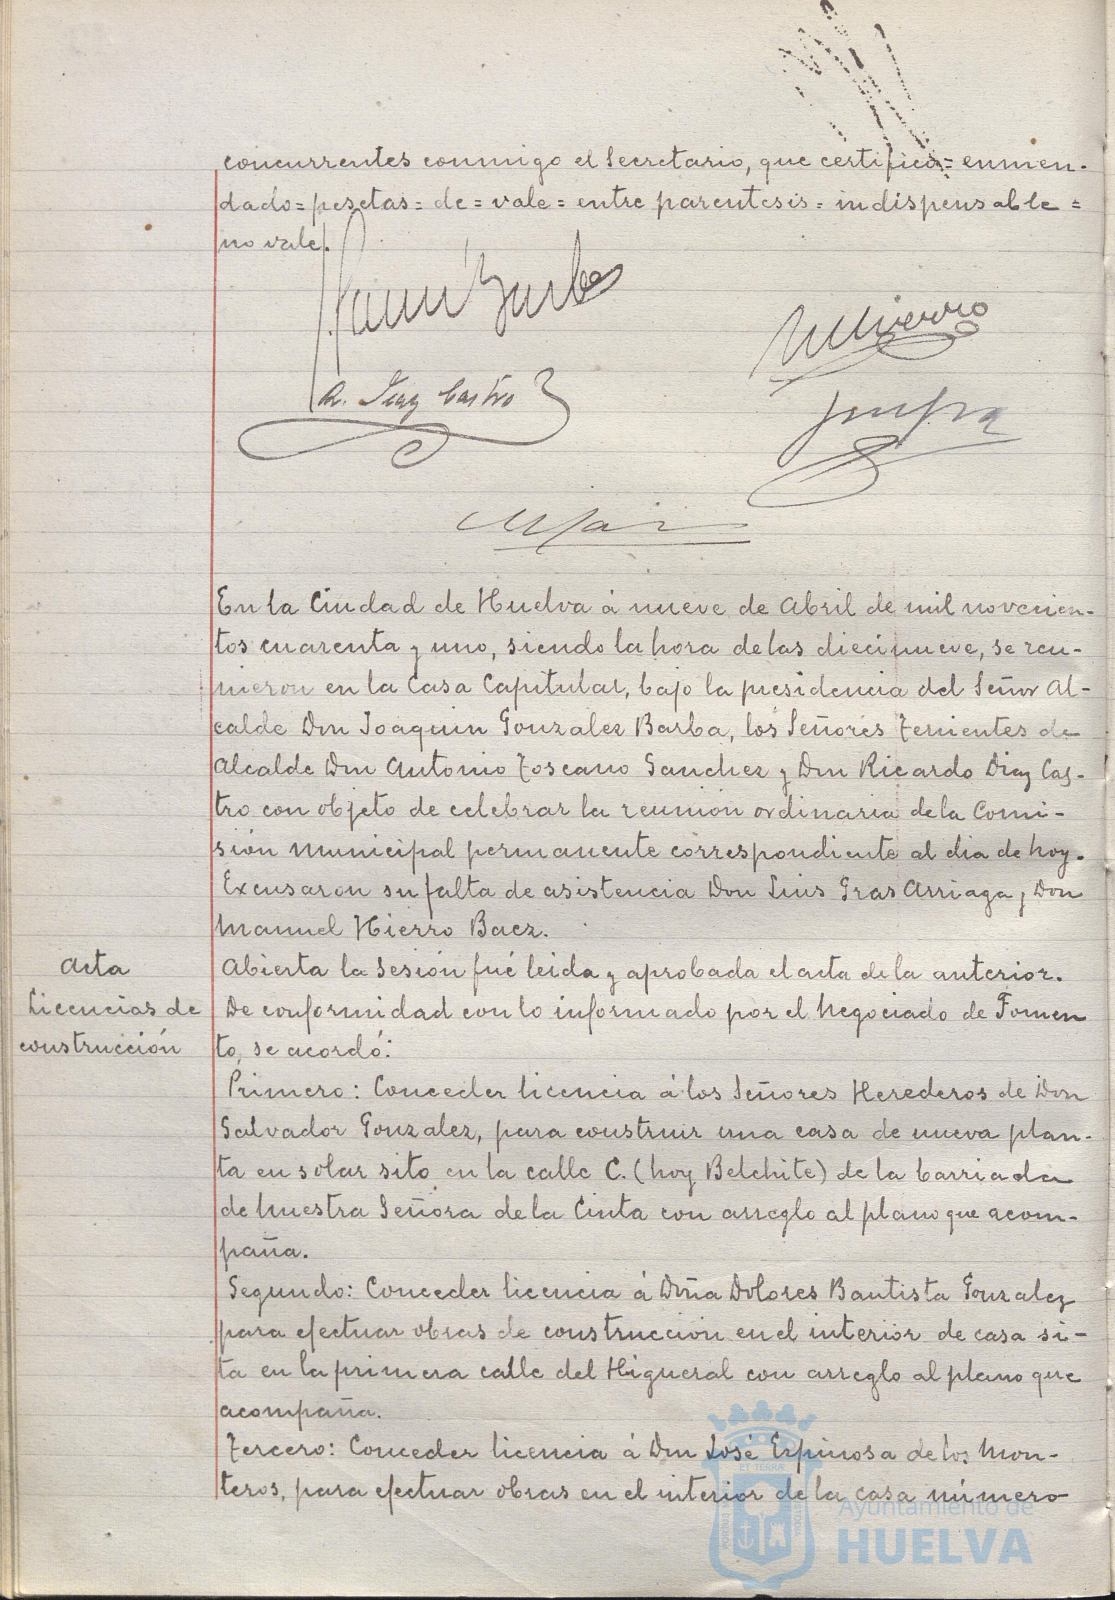 concurrentes conmigo el Secretario, que certifico = enmen-
dado = pesetas = de = vale = entre parentesis = indispensable =
no vale.
R. Diaz Castro
En la Ciudad de Huelva á nueve de Abril de mil novecien-
tos cuarenta y uno, siendo la hora de las diecinueve, se reu-
nieron en la Casa Capitular, bajo la presidencia del Señor Al-
calde Don Joaquin Gonzalez Barba, los Señores Tenientes de
Alcalde Don Antonio Toscano Sanchez y Don Ricardo Diaz Cas-
tro con objeto de celebrar la reunión ordinaria de la Comi-
sión municipal permanente correspondiente al dia de hoy.
Excusaron su falta de asistencia Don Luis Gras Arriaga y Don
Manuel Hierro Baez.
Acta
Abierta la Sesión fué leida y aprobada el acta de la anterior.
Licencias de
construcción
De conformidad con lo informado por el Negociado de Fomen
to, se acordó:
Primero: Conceder licencia á los Señores Herederos de Don
Salvador Gonzalez, para construir una casa de nueva plan-
ta en solar sito en la calle C. (hoy Belchite) de la barriada
de Nuestra Señora de la Cinta con arreglo al plano que acom-
paña.
Segundo: Conceder licencia á Doña Dolores Bautista Gonzalez
para efectuar obras de construcción en el interior de casa si-
ta en la primera calle del Higueral con arreglo al plano que
acompaña.
Tercero: Conceder licencia á Don José Espinosa de los Mon-
teros, para efectuar obras en el interior de la casa número
Ayuntamiento de
HUELVA